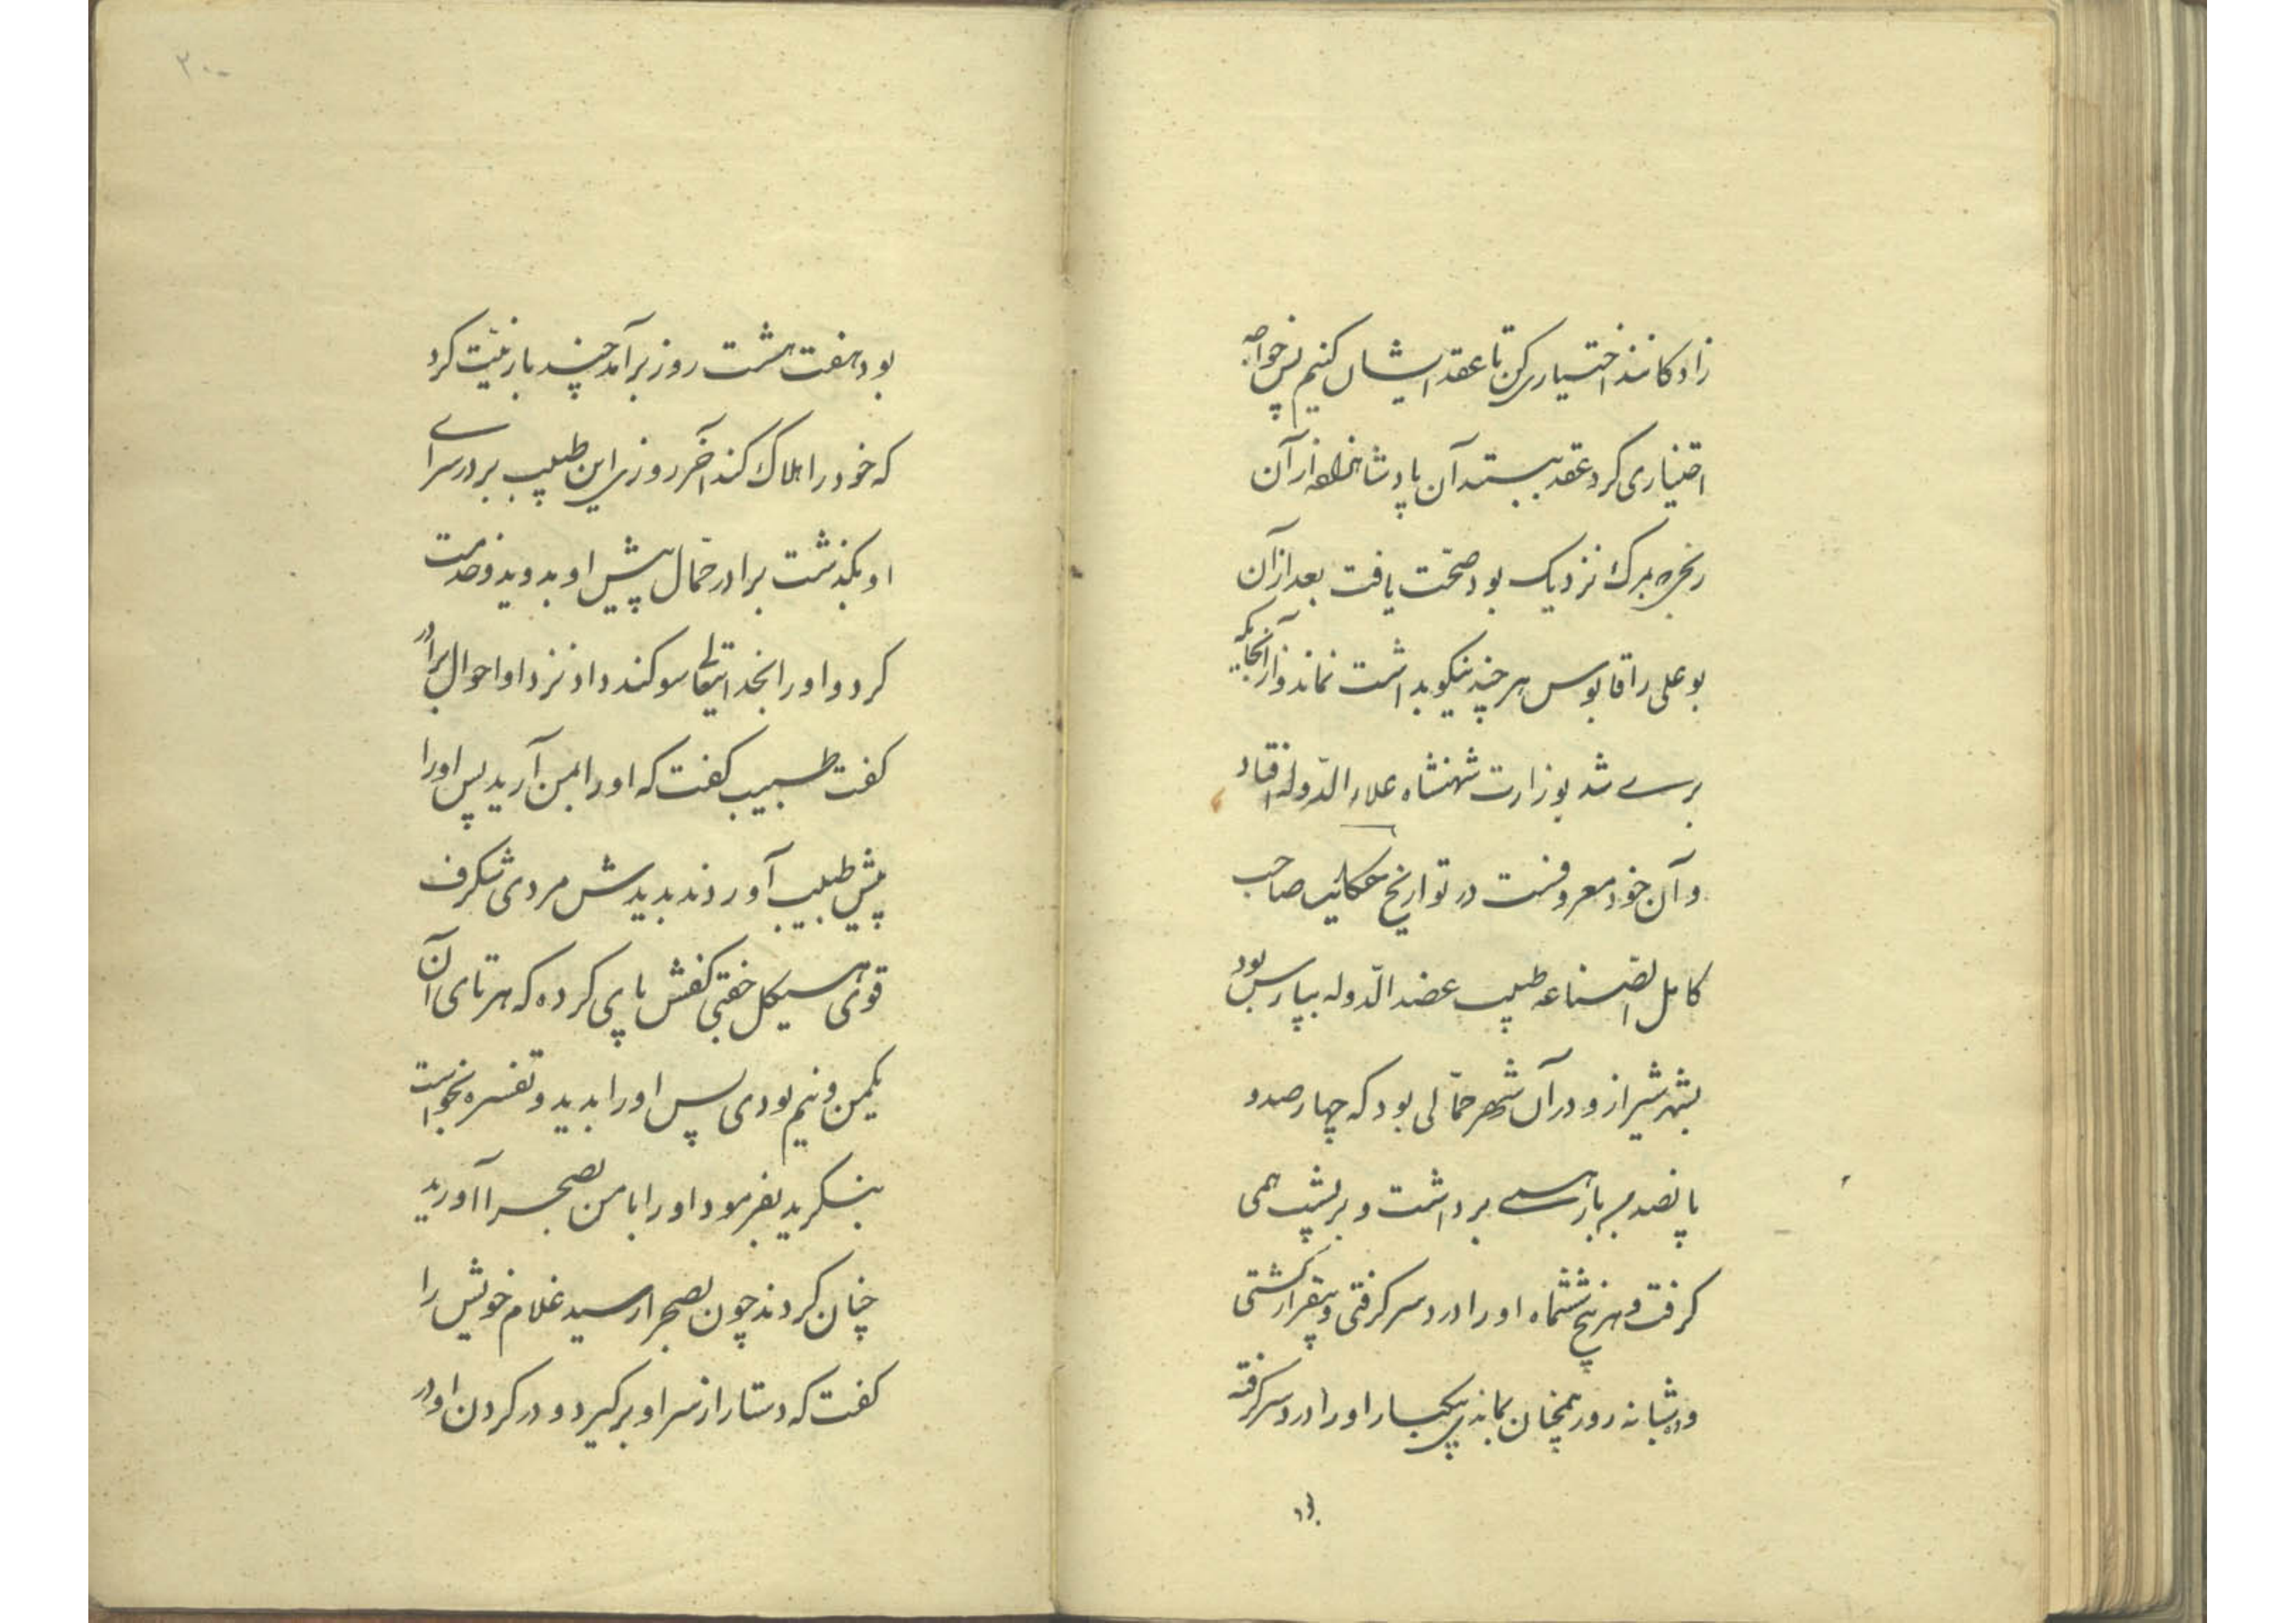 زاد کانند اختیاری کن تا عقد ایشان کنیم پس خواجه
اختیاری کرد عقد ببستند آن پادشاهزاده از آن
رنجی که بمرک نزدیک بود صحّت یافت بعد از آن
بوعلی را قابوس هر چند نیکو بداشت نماند و از آنجایکه
بری شد بوزارت شهنشاه علاء الدّوله افتاد
و آن خود معروفست در تواریخ حکایت صاحب
کامل الصّناعه طبیب عضد الدّوله بپارس بود
بشهر شیراز و در آن شهر حمّالی بود که چهار صد و
پانصد من بار همی برداشت و بر پشت همی
کرفت و هر پنج ششماه او را درد سر کرفتی و بیقرار کشتی
و ده شبانه روز همچنان بماندی یکبار او را درد سر کرفته
بود هفت هشت روز بر آمد چند بار نیّت کرد
که خود را هلاک کند آخر روزی این طبیب بر در سرای
او بگذشت برادر حمّال پیش او بدوید و خدمت
کرد و او را بخدایتعالی سوکند داد نزد او احوال برادر
کفت طبیب کفت که او را بمن آرید پس او را
پیش طبیب آوردند بدیدش مردی شکرف
قوی هیکل جفتی کفش پای کرده که هر تای آن
یکمن و نیم بودی پس او را بدید و تفسره بخواست
بنکرید بفرمود او را با من بصحرا آورید
چنان کردند چون بصحرا رسید غلام خویش را
کفت که دستار از سر او برگیرد و در کردن او در